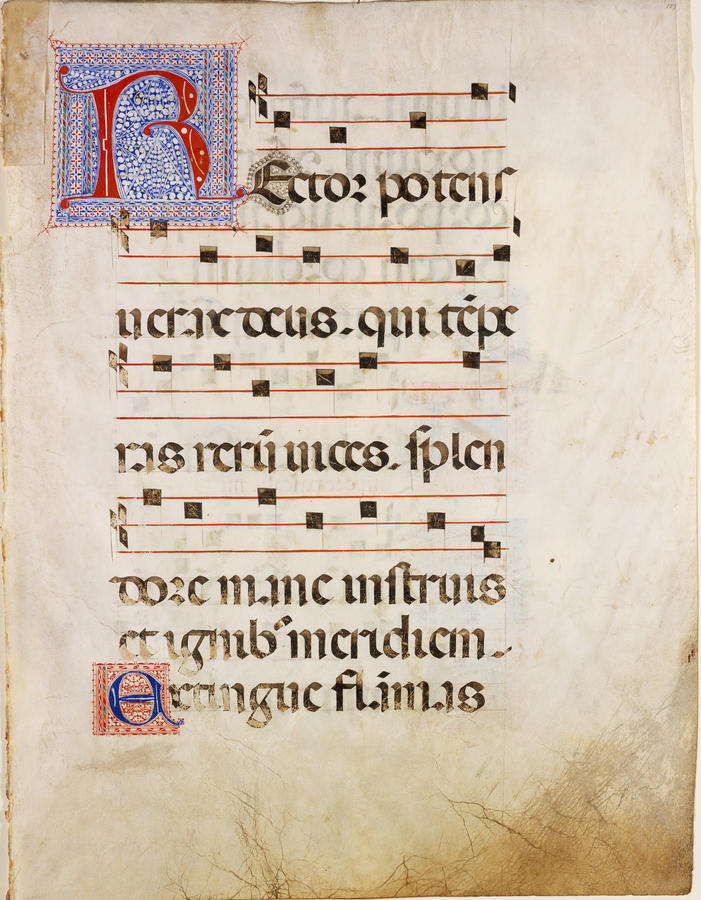 REctor potens
uerax deus. qui tēpe
ras rerū uices. splen
dore mane instruis
et ignibꝰ meridiem.
Extingue flāmas